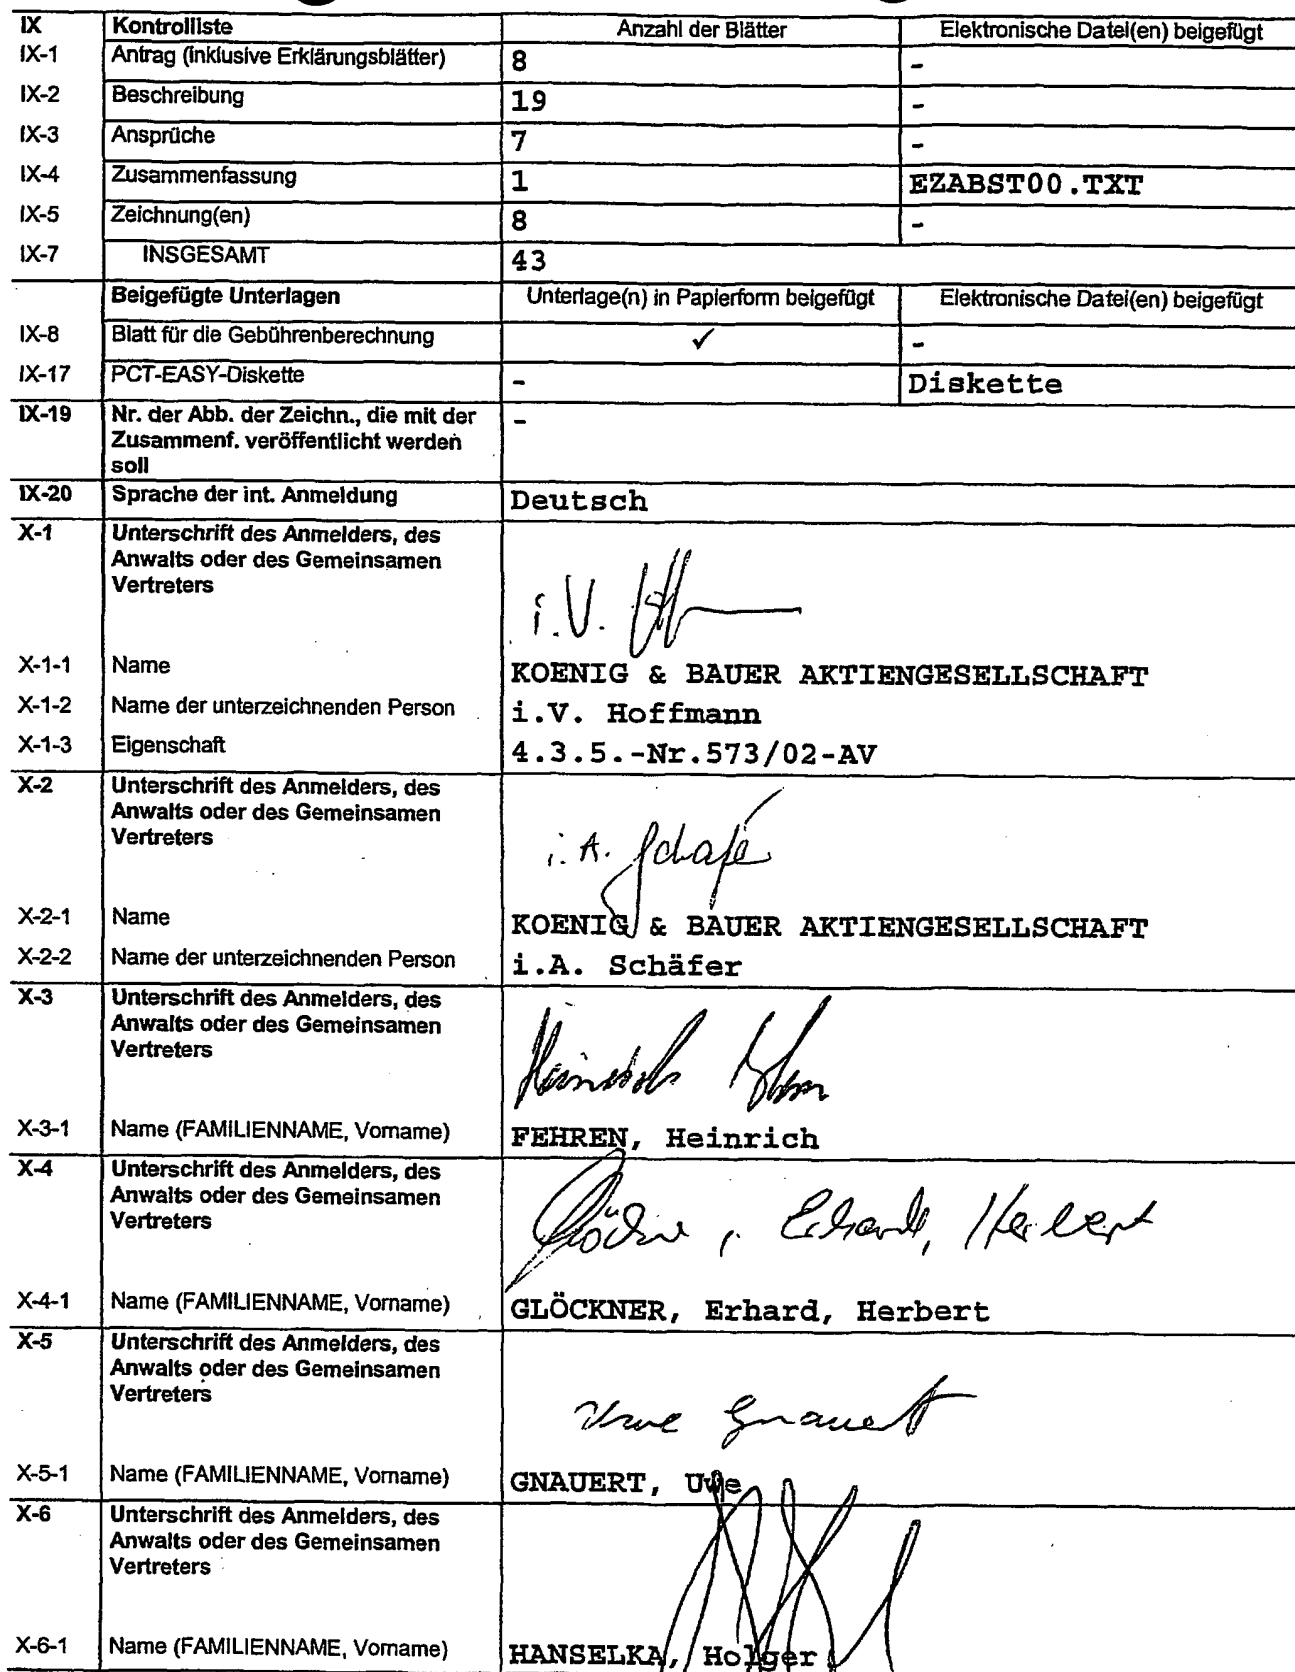 IX Kontrolliste Anzahl der Blätter Elektronische Datei(en) beigefügt
IX-1 Antrag (inklusive Erklärungsblätter) 8 -
IX-2 Beschreibung 19 -
IX-3 Ansprüche 7 -
IX-4 Zusammenfassung 1 EZABST00.TXT
IX-5 Zeichnung(en) 8 -
IX-7 INSGESAMT 43
Beigefügte Unterlagen Unterlage(n) in Papierform beigefügt Elektronische Datei(en) beigefügt
IX-8 Blatt für die Gebührenberechnung ✓ -
IX-17 PCT-EASY-Diskette - Diskette
IX-19 Nr. der Abb. der Zeichn., die mit der -
Zusammenf. veröffentlicht werden
soll
IX-20 Sprache der int. Anmeldung Deutsch
X-1 Unterschrift des Anmelders, des
Anwalts oder des Gemeinsamen
Vertreters
i.V.
X-1-1 Name KOENIG & BAUER AKTIENGESELLSCHAFT
X-1-2 Name der unterzeichnenden Person i.V. Hoffmann
X-1-3 Eigenschaft 4.3.5.-Nr.573/02-AV
X-2 Unterschrift des Anmelders, des
Anwalts oder des Gemeinsamen
Vertreters
i.A. Schäfe
X-2-1 Name KOENIG & BAUER AKTIENGESELLSCHAFT
X-2-2 Name der unterzeichnenden Person i.A. Schäfer
X-3 Unterschrift des Anmelders, des
Anwalts oder des Gemeinsamen
Vertreters
Heinrich
X-3-1 Name (FAMILIENNAME, Vorname) FEHREN, Heinrich
X-4 Unterschrift des Anmelders, des
Anwalts oder des Gemeinsamen
Vertreters
Glöckner, Erhard, Herbert
X-4-1 Name (FAMILIENNAME, Vorname) GLÖCKNER, Erhard, Herbert
X-5 Unterschrift des Anmelders, des
Anwalts oder des Gemeinsamen
Vertreters
Uwe Gnauert
X-5-1 Name (FAMILIENNAME, Vorname) GNAUERT, Uwe
X-6 Unterschrift des Anmelders, des
Anwalts oder des Gemeinsamen
Vertreters
X-6-1 Name (FAMILIENNAME, Vorname) HANSELKA, Holger